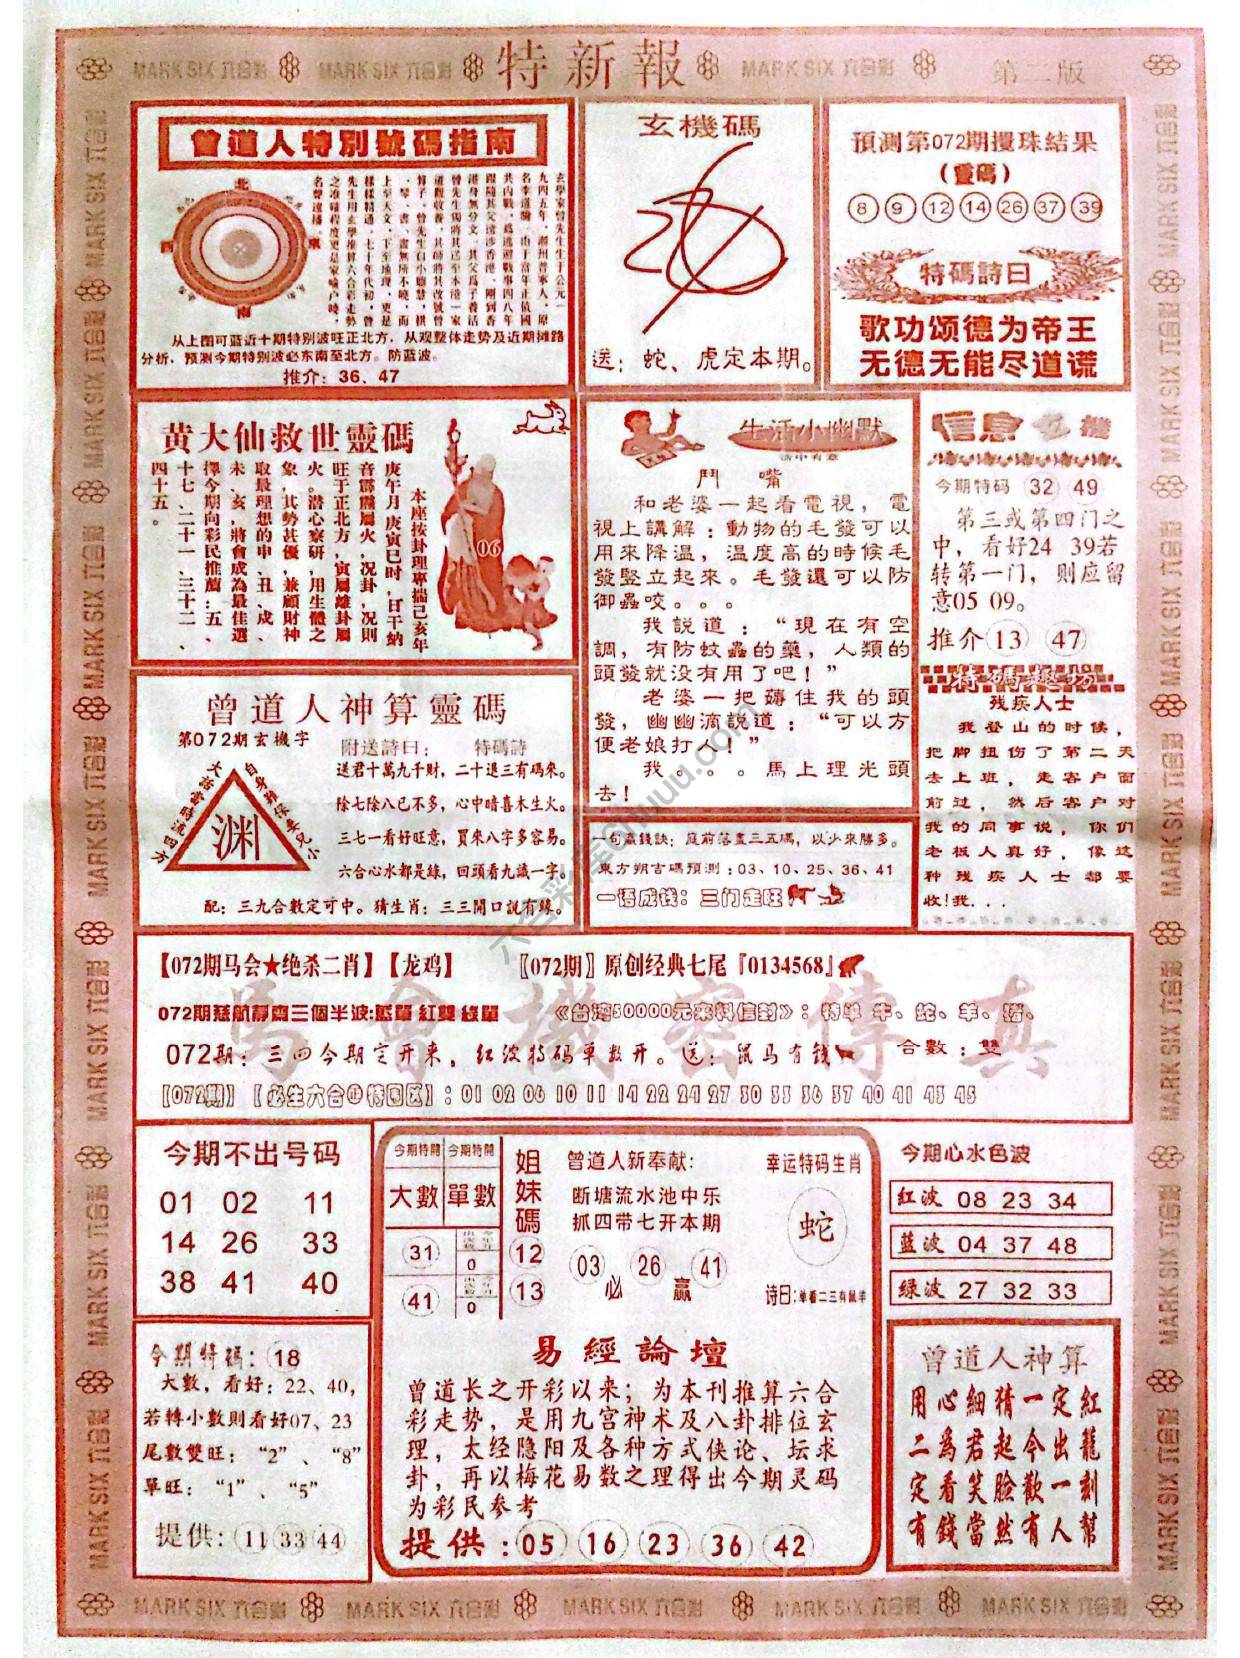 MARK SIX 六合彩
特新報
第二版
曾道人特別號碼指南
北
西
東
南
玄學家曾先生生于公元一
九四五年，潮州普寧人，原
名李道勝，由于當年正值國
共内戰，爲逃避戰事四八年
跟隨其父逃涉香港，剛到香
港身無分文，其父爲了養活
曾先生獨將其送至本港一家
道觀收養，其師將其改號曾
算子，曾先生自小聰慧，棋
、琴、書、畫無所不曉，而
上至天文，下至地理，更是
樣樣精通，七十年代初，曾
先生用玄學推算六合彩走勢
之准確程度更是家喻户曉，
名聲遠播。
从上图可蓝近十期特别波旺正北方，从观整体走势及近期摊路
分析，预测今期特别波必东南至北方。防蓝波。
推介：36、47
玄機碼
送：蛇、虎定本期。
預測第072期攪珠結果
（靈碼）
8 9 12 14 26 37 39
特碼詩曰
歌功颂德为帝王
无德无能尽道谎
黄大仙救世靈碼
本座按卦理專揣己亥年
庚午月 庚寅巳时，日干納
音霹靂屬火，况卦，况則
旺于正北方，寅屬離卦屬
火。潜心察研，用生體之
象，其勢甚優，兼顧財神
取最理想的申、丑、戌、
未、亥，將會成為最佳選
擇今期向彩民推薦：五、
十七、二十一、三十二、
四十五。
06
生活小幽默
話中有意
鬥 嘴
和老婆一起看電視，電
視上講解：動物的毛發可以
用來降温，温度高的時候毛
發竪立起來。毛發還可以防
御蟲咬。。。
我説道：“現在有空
調，有防蚊蟲的藥，人類的
頭發就没有用了吧！”
老婆一把薅住我的頭
發，幽幽滴説道：“可以方
便老娘打人！”
我。。。馬上理光頭
去！
信息玄機
今期特码 32 49
第三或第四门之
中，看好24 39若
转第一门，则应留
意05 09。
推介 13 47
特碼趣坊
残疾人士
我登山的时候，
把脚扭伤了第二天
去上班，走客户面
前过，然后客户对
我的同事说，你们
老板人真好，像这
种残疾人士都要
收!我...
曾道人神算靈碼
第072期玄機字
渊
附送詩曰：
特碼詩
送君十萬九千财，二十退三有碼來。
除七除八已不多，心中暗喜木生火。
三七一看好旺意，買來八字多容易。
六合心水都是緑，回頭看九識一字！
配：三九合數定可中。猜生肖：三三開口説有緣。
一句贏錢訣：庭前落畫三五碼，以少來勝多。
東方朔古碼預測：03、10、25、36、41
一语成钱：三门走旺
【072期马会★绝杀二肖】【龙鸡】
〖072期〗原创经典七尾『0134568』
馬會機密傳真
072期慈航靜齋三個半波:藍單 紅雙 綠單
《台湾50000元来料信封》：特单 牛、蛇、羊、猪、
072期：三四今期定开来，红波特码单数开。送：鼠马有钱
合數：雙
【072期】【必生六合中特围区】：01 02 06 10 11 14 22 24 27 30 33 36 37 40 41 43 45
今期不出号码
01 02 11
14 26 33
38 41 40
今期特開 今期特開
大數 單數
31
0
41
0
姐妹碼
12
13
曾道人新奉献：
断塘流水池中乐
抓四带七开本期
03 26 41
必 赢
幸运特码生肖
蛇
诗曰：单看二三有鼠羊
今期心水色波
红波 08 23 34
蓝波 04 37 48
绿波 27 32 33
今期特碼：18
大數，看好：22、40，
若轉小數則看好07、23
尾數雙旺：“2”、“8”
單旺：“1”、“5”
提供：11 33 44
易經論壇
曾道长之开彩以来；为本刊推算六合
彩走势，是用九宫神术及八卦排位玄
理，太经隐阳及各种方式侠论、坛求
卦，再以梅花易数之理得出今期灵码
为彩民参考
提供：05 16 23 36 42
曾道人神算
用心細猜一定紅
二爲君起今出籠
定看笑臉歡一刻
有錢當然有人幫
MARK SIX 六合彩